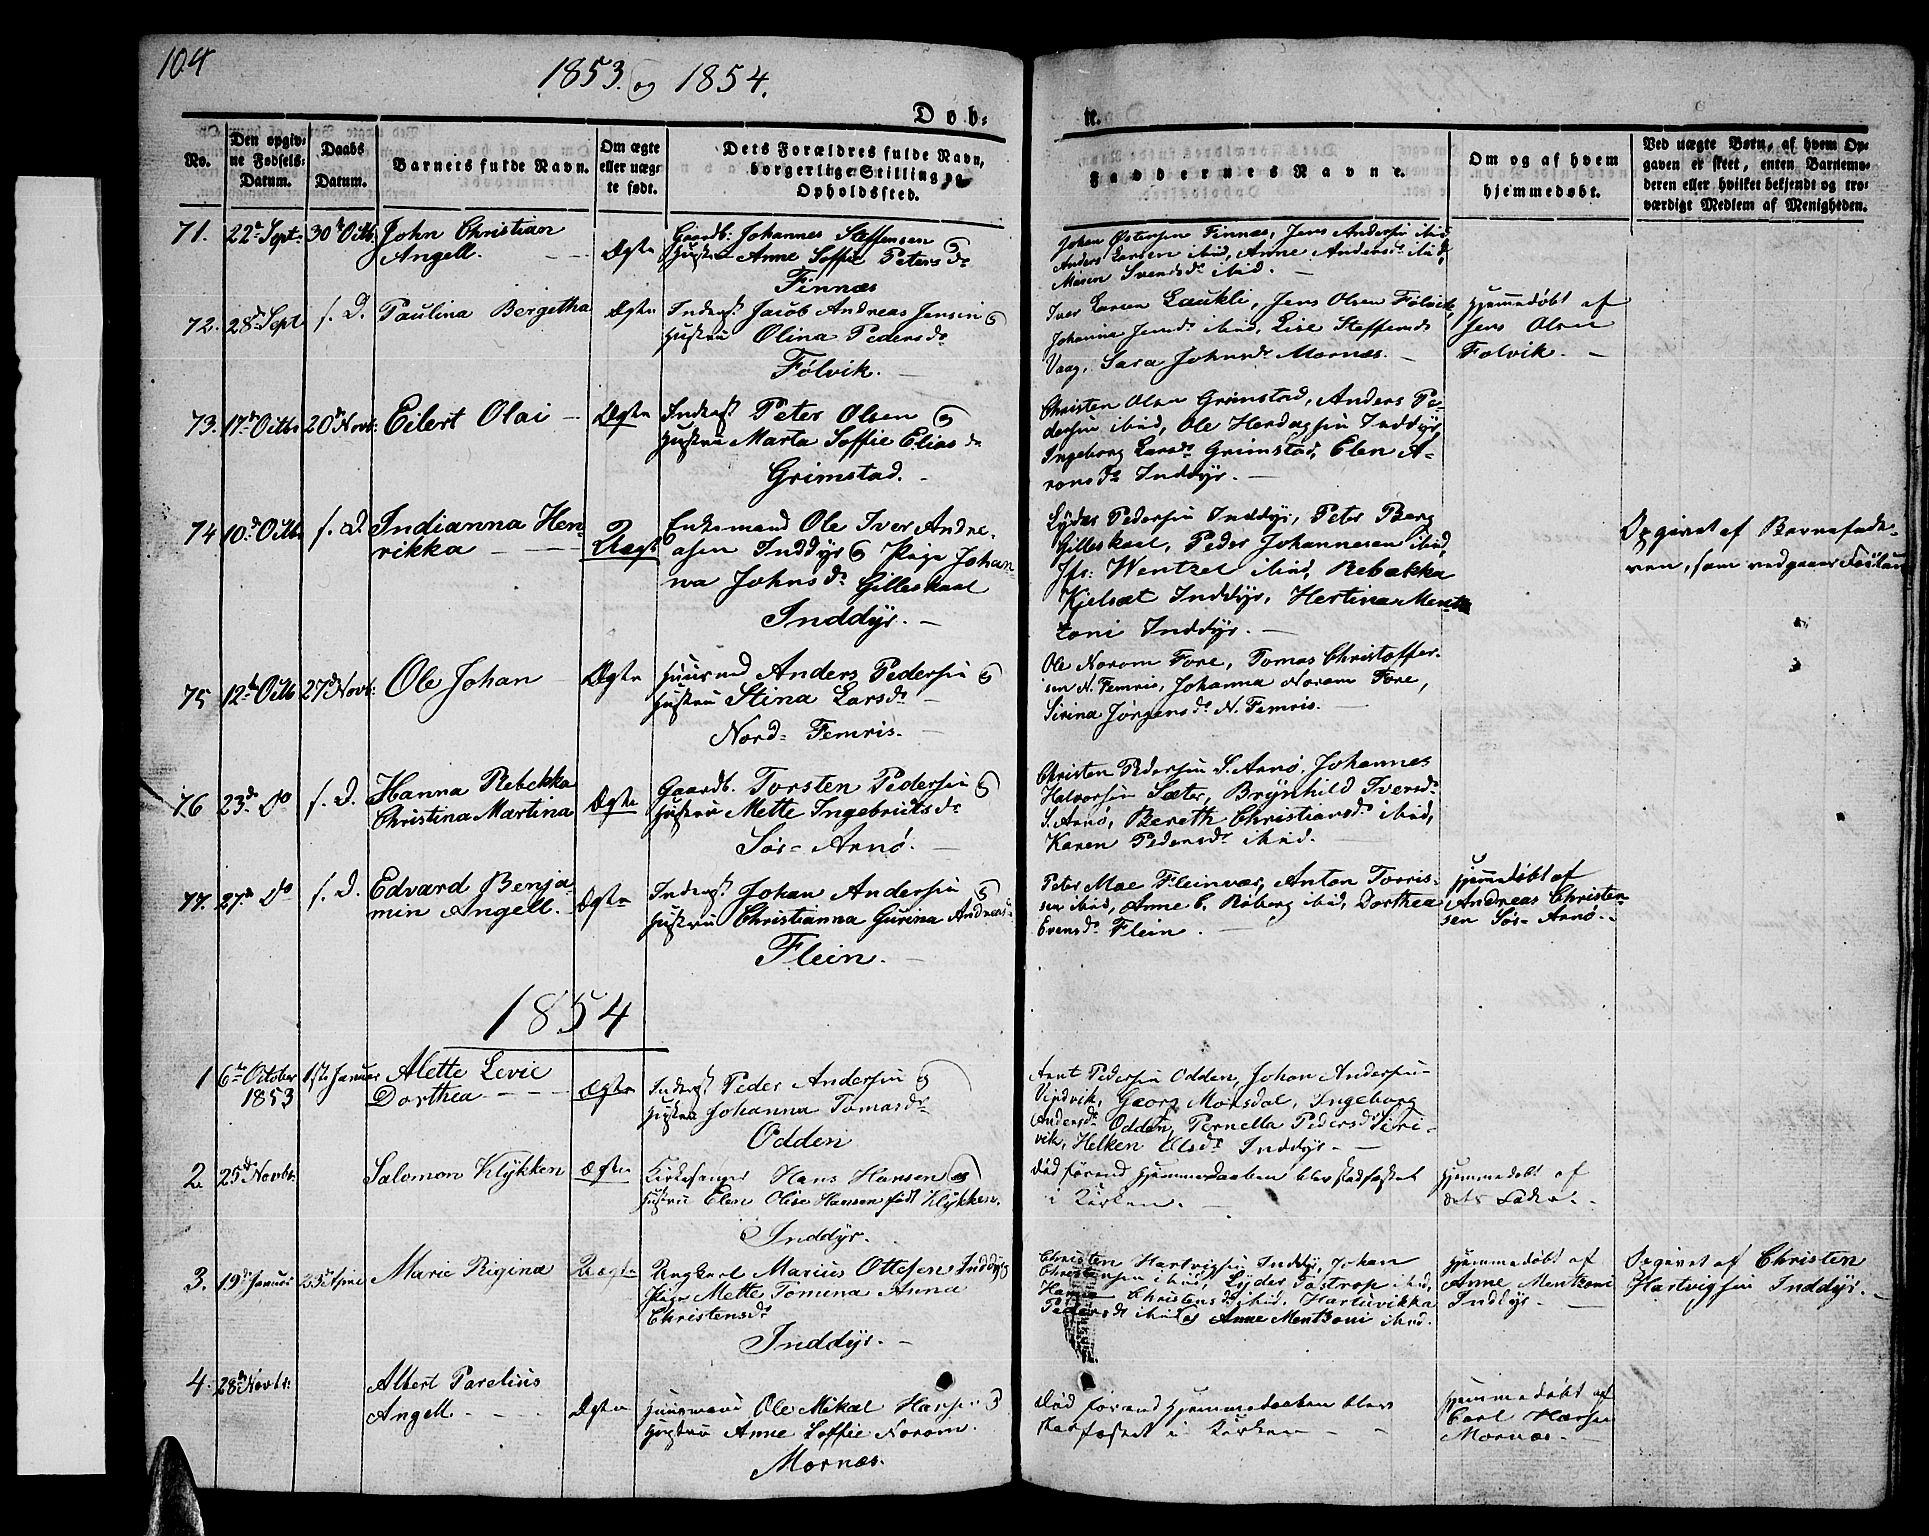 104
1853 og 1854.
Døb-
te.
No.
Den opgiv-
ne Fødsels-
Datum.
Daabs
Datum.
Barnets fulde Navn.
Om ægte
eller uæg-
te født.
Dets Forældres fulde Navn,
borgerlige Stilling og
Opholdssted.
Faddernes Navne.
Om og af hvem
hjemmedøbt.
Ved uægte Børn, af hvem Op-
gaven er skeet, enten Barnemo-
deren eller hvilket bekjendt og tro-
værdigt Medlem af Menigheden.
71. 22de Sept. 30te Octb. John Christian
Angell.
Ægte
Gaardb. Johannes Steffensen og
Hustru Anne Soffie Petersdr
Finnæs
Johan Østersen Finnæs, Jens Andersen ibid
Anders Larsen ibid, Anne Andersdr ibid,
Maren Svendsdr ibid.
72. 28de Sept. s. D. Paulina Bergetha
Ægte
Inderst Jacob Andreas Jensen og
Hustru Olina Pedersdr
Følvik.
Iver Larsen Laukli, Jens Olsen Følvik,
Johanna Jensdr ibid, Lise Steffensdr
Vaag, Sara Johnsdr Mornæs.
Hjemmedøbt af
Jens Olsen
Følvik.
73. 17de Octb. 20de Novb. Eilert Olai
Ægte
Inderst Peter Olsen og
Hustru Marta Soffie Eliasdr
Grimstad.
Christen Olsen Grimstad, Anders Pe-
dersen ibid, Ole Hendagsen Inddyr,
Ingeborg Larsdr Grimstad, Elen A-
ronsdr Inddyr.
74 10de Octb. s. D. Indianna Hen-
rikka
Uægte
Enkemand Ole Iver Andre-
asen Inddyr og Pige Johan-
na Johnsdr Gilleskaal
Inddyr.
Lydas Pedersen Inddyr, Peter Berg
Gilleskaal, Peder Johannesen ibid,
Jfr: Wentzel ibid, Rebækka
Kjelsæt Inddyr, Hertina Ment-
zoni Inddyr.
Opgivet af Barnefade-
ren, som vedgaaer
75 12te Octb. 27de Novb. Ole Johan
Ægte
Huusmd Anders Pedersen og
Hustru Stina Larsdr
Nord-Femris.
Ole Norom Fore, Tomas Christoffer-
sen N. Femris, Johanna Norom Fore,
Sirina Jørgensdr N. Femris.
76 23de Do s. D. Hanna Rebekka
Christina Martina
Ægte
Gaardb. Torsten Pedersen og
Hustru Mette Ingebriktsdr
Sør-Arnø.
Christen Pedersen S. Arnø, Johannes
Halvorsen Sæter, Brynhild Iversdr
S. Arnø, Bereth Christiansdr ibid,
Karen Pedersdr ibid.
77. 27de Do s. D. Edvard Benja-
min Angell.
Ægte
Inderst Johan Andersen og
Hustru Christianna Gurina Andreasdr
Flein.
Peter Moe Fleinvær, Anton Torris-
sen ibid, Anne C. Røberg ibid, Dorthea
Evensdr Flein.
Hjemmedøbt af
Andreas Christen-
sen Sør-Arnø.
1854
1 6te October
1853
1ste Januar Alette Levie
Dorthea
Ægte
Inderst Peder Andersen og
Hustru Johanna Tomasdr
Odden
Arnt Pedersen Odden, Johan Andersen
Vindvik, Georg Morsdal, Ingeborg
Andersdr Odden, Pernella Pedersdr Seri-
vik, Helken Olsdr Inddyr.
2. 25de Novbr. Salomon Klykken
Ægte
Kirkesanger Hans Hansen og
Hustru Elen Olise Hansen født Klykken
Inddyr.
Død førend Hjemmedaaben blev stadfæstet
i Kirken.
Hjemmedøbt af
dets Fader.
3. 19de Januar 23de April Marie Rigina
Uægte
Ungkarl Marius Ottesen Inddyr og
Pige Mette Tomina Anna
Christensdr
Inddyr.
Christen Hartvigsen Inddyr, Johan
Christensen ibid, Lyder Tostrop ibid,
Hanna Christensdr ibid, Hartvikka
Pedersdr ibid og Anne Mentzoni ibid.
Hjemmedøbt af
Anne Mentzoni
Inddyr.
Opgivet af Christen
Hartvigsen Inddyr.
4. 28de Novbr. Albert Parelius
Angell.
Ægte
Huusmand Ole Mikal Hansen og
Hustru Anne Soffie Norom.
Mornæs.
Død førend Hjemmedaaben blev
stadfæstet i Kirken
Hjemmedøbt af
Carl Hansen
Mornæs.